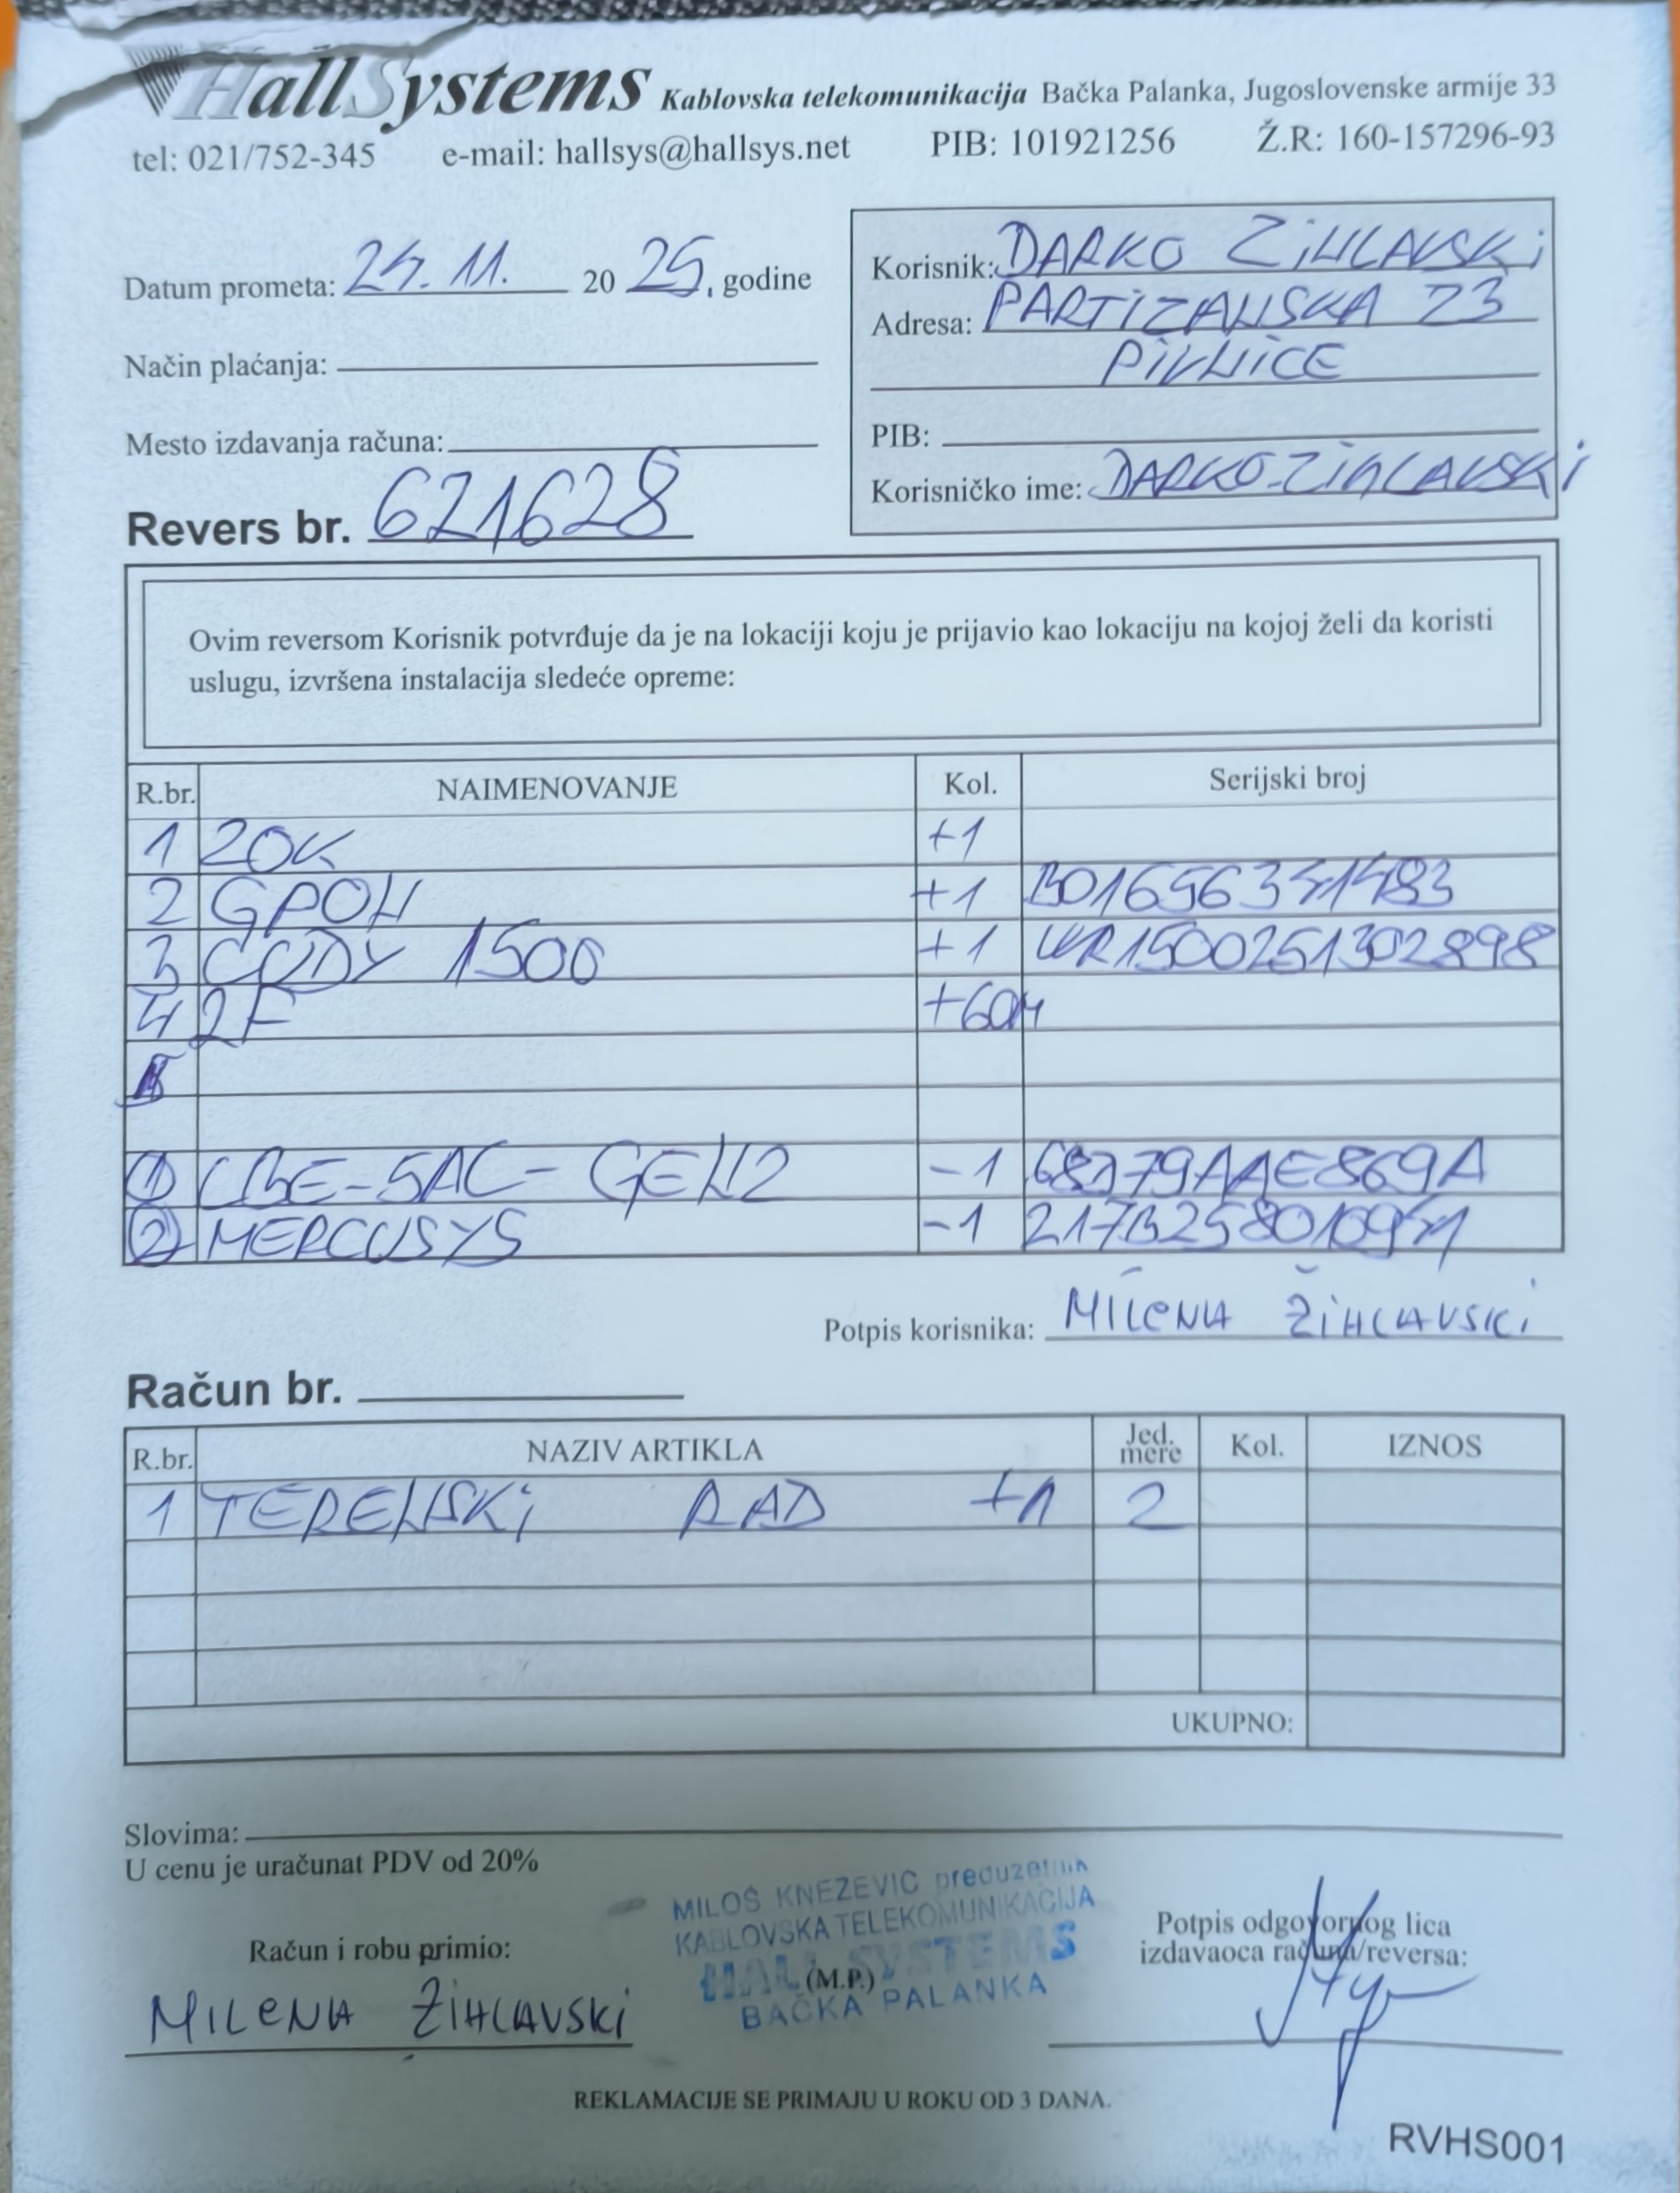 HallSystems Kablovska telekomunikacija Bačka Palanka, Jugoslovenske armije 33
tel: 021/752-345 e-mail: hallsys@hallsys.net PIB: 101921256 Ž.R: 160-157296-93
Datum prometa: 24. 11. 20 25. godine
Način plaćanja:
Mesto izdavanja računa:
Revers br. 621628
Korisnik: DARKO ZIHLAVSKI
Adresa: PARTIZANSKA 23
PIVNICE
PIB:
Korisničko ime: DARKO-ZIHLAVSKI
Ovim reversom Korisnik potvrđuje da je na lokaciji koju je prijavio kao lokaciju na kojoj želi da koristi
uslugu, izvršena instalacija sledeće opreme:
R.br. NAIMENOVANJE Kol. Serijski broj
1 ZOK +1
2 GPON +1 B01656341483
3 CUDY 1500 +1 WR1500251302898
4 2F +60M
1 LBE-5AC-GEN2 -1 68D79AAE869A
2 MERCUSYS -1
Potpis korisnika: MILENA ŽIHLAVSKI
Račun br.
R.br. NAZIV ARTIKLA Jed. mere Kol. IZNOS
1 TERENSKI RAD +1 2
UKUPNO:
Slovima:
U cenu je uračunat PDV od 20%
MILOŠ KNEŽEVIĆ preduzetnik
KABLOVSKA TELEKOMUNIKACIJA
HALL SYSTEMS
BAČKA PALANKA
(M.P.)
Račun i robu primio:
MILENA ŽIHLAVSKI
Potpis odgovornog lica
izdavaoca računa/reversa:
REKLAMACIJE SE PRIMAJU U ROKU OD 3 DANA.
RVHS001